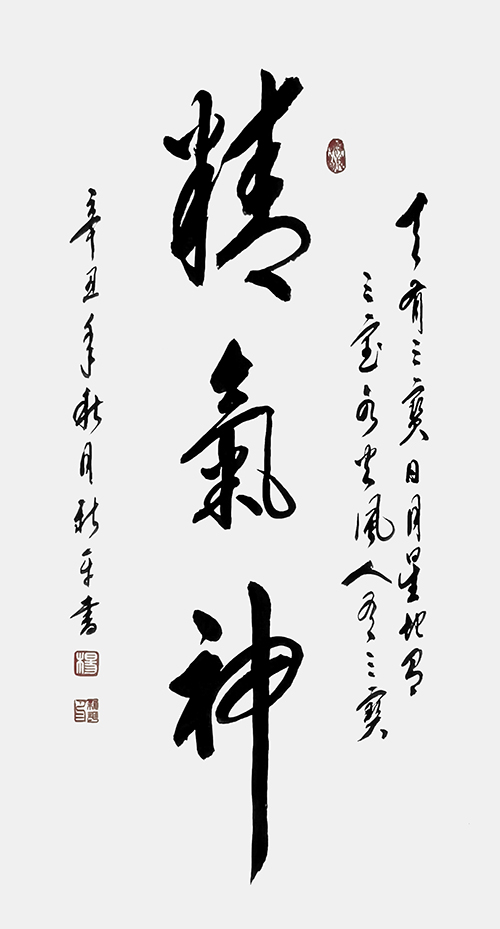 天有三寳日月星地有
三宝水火風人有三寳
精氣神
辛丑年秋月新平書
楊